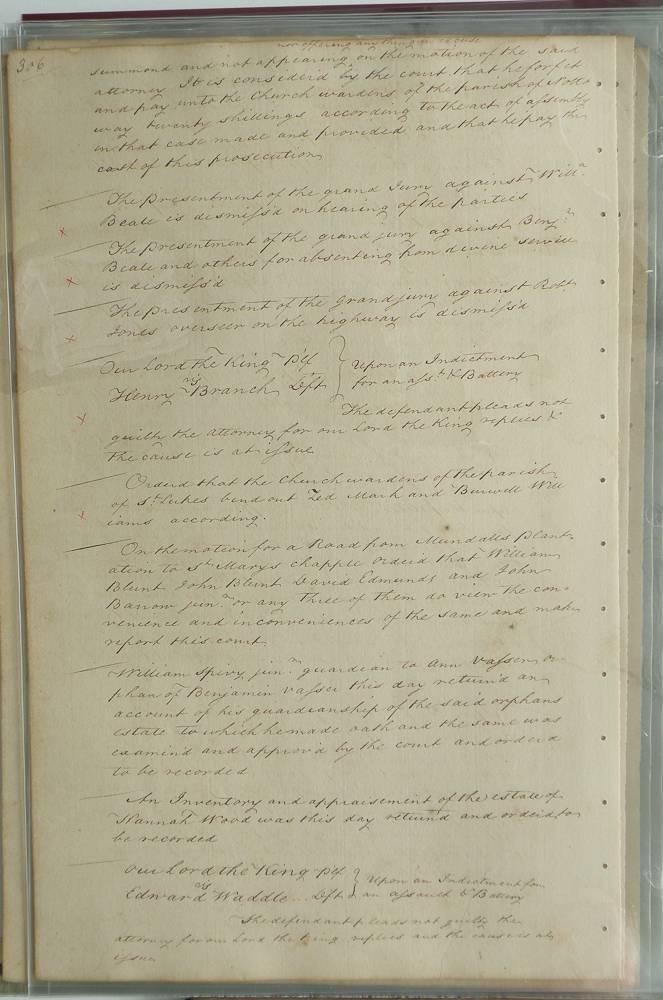 306
nor offering any thing in excuse
summond and not appearing on the motion of the said
attorney It is considerd by the court that he forfeit
and pay unto the Church wardens of the parish of Notto
way twenty shillings according to the act of assembly
in that case made and provided and that he pay the
cost of this prosecution
The presentment of the grand Jury against Willm
Beale is dismiss'd on hearing of the parties
The presentment of the grand jury against Benja
Beale and others for absenting from devine service
is dismiss'd
The presentment of the Grand jury against Robt
Jones overseer on the highway is dismiss'd
Our Lord the King Plf
vs
Henry Branch Deft
Upon an Indictment
for an asst & Battery
The defendant pleads not
guilty the attorney for our Lord the King replies &
the cause is at issue
Orderd that the Church wardens of the parish
of St Lukes bind out Zed Mark and Burwell Will
iams according.
On the motion for a Road from Mundalls Plant
ation to St Marys chapple orderd that William
Blunt John Blunt David Edmunds and John
Barrow junr or any Three of them do view the con
venience and inconveniences of the same and make
report this court
William Spivy junr guardian to Ann Vasser or
phan of Benjamin Vasser this day return'd an
account of his guardianship of the said orphans
estate to which he made oath and the same was
examind and approv'd by the court and orderd
to be recorded
An Inventory and appraisement of the estate of
Hannah Wood was this day return'd and orderd to
be recorded
Our Lord the King Plf
vs
Edward Waddle Deft
Upon an Indictment for
an assault & Battery
The defendant pleads not guilty the
attorney for our Lord the King replies and the cause is at
issue